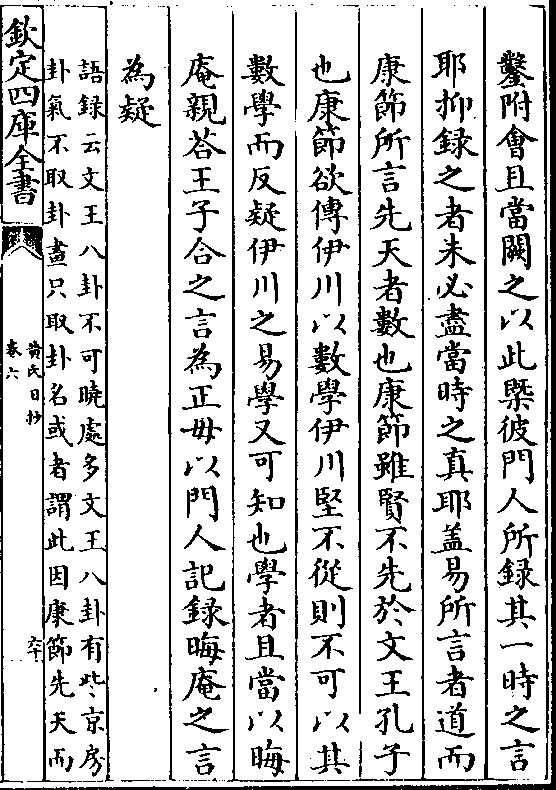 鑿附會且當闕之以此槩彼門人所録其一時之言
耶抑録之者未必盡當時之真耶盖易所言者道而
康節所言先天者數也康節雖賢不先於文王孔子
也康節欲傳伊川以數學伊川堅不從則不可以其
數學而反疑伊川之易學又可知也學者且當以晦
庵親荅王子合之言為正毋以門人記録晦庵之言
為疑
語録云文王八卦不可曉處多文王八卦有些京房
卦氣不取卦畫只取卦名或者謂此因康節先天而
欽定四庫全書
黄氏日抄
卷六
六十